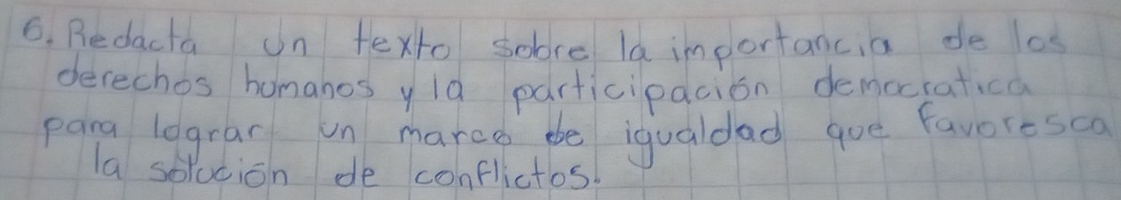 6. Redacta un texto sobre la importancia de los
derechos humanos y la participación democratica
para lograr un marco de igualdad que favoresca
la solución de conflictos.